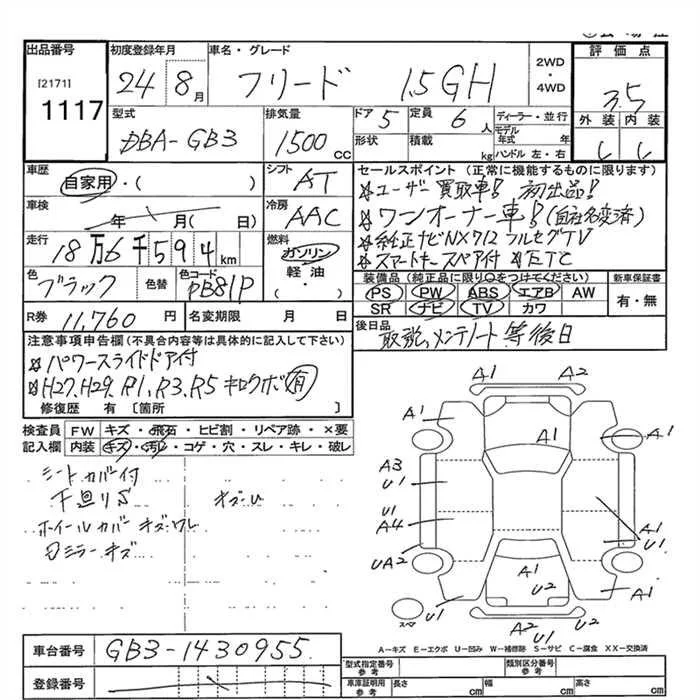 出品番号 初度登録年月 車名・グレード 2WD・4WD 評価点
[2171]
1117
24 8月 フリード 1.5GH 3.5
型式 排気量 ドア 5 定員 6人 ディーラー・並行 外装 内装
DBA-GB3 1500cc 形状 積載 kg モデル年式 年 ハンドル 左・右 C C
車歴 自家用・( ) シフト AT セールスポイント (正常に機能するものに限ります)
☆ユーザー買取車! 初出品!
車検 年 月( 日) 冷房 AAC ☆ワンオーナー車!(自社名変済)
走行 18万6千594km 燃料 ガソリン 軽油・( ) ☆純正ナビNX712 フルセグTV
☆スマートキースペア付 ☆ETC
色 ブラック 色替 色コード PB81P 装備品 (純正品に限り○をつけてください) 新車保証書
PS PW ABS エアB AW 有・無
SR ナビ TV カワ
R券 11,760円 名変期限 月 日 後日品 取説、メンテノート等後日
注意事項申告欄(不具合内容等は具体的に記入して下さい)
☆パワースライドドア付
☆H27、H29、R1、R3、R5 キロクボ有
修復歴 有 [箇所 ]
検査員記入欄 FW キズ・飛石・ヒビ割・リペア跡・×要
内装 キズ・汚れ・コゲ・穴・スレ・キレ・破レ
シートカバー付
下廻りS キズ・U
ホイールカバー キズ・ワレ
ミラーキズ
A1 A2
A1 A1 A1
A3
U1
U1
A4 A1
U1
UA2 A1 A1
U2
U1
スペア A2 U1 U2
A-キズ E-エクボ U-凹み W-補修跡 S-サビ C-腐食 XX-交換済
車台番号 GB3-1430955
登録番号
型式指定番号 参考 類別区分番号 参考
車庫証明用 参考 長さ cm 幅 cm 高さ cm